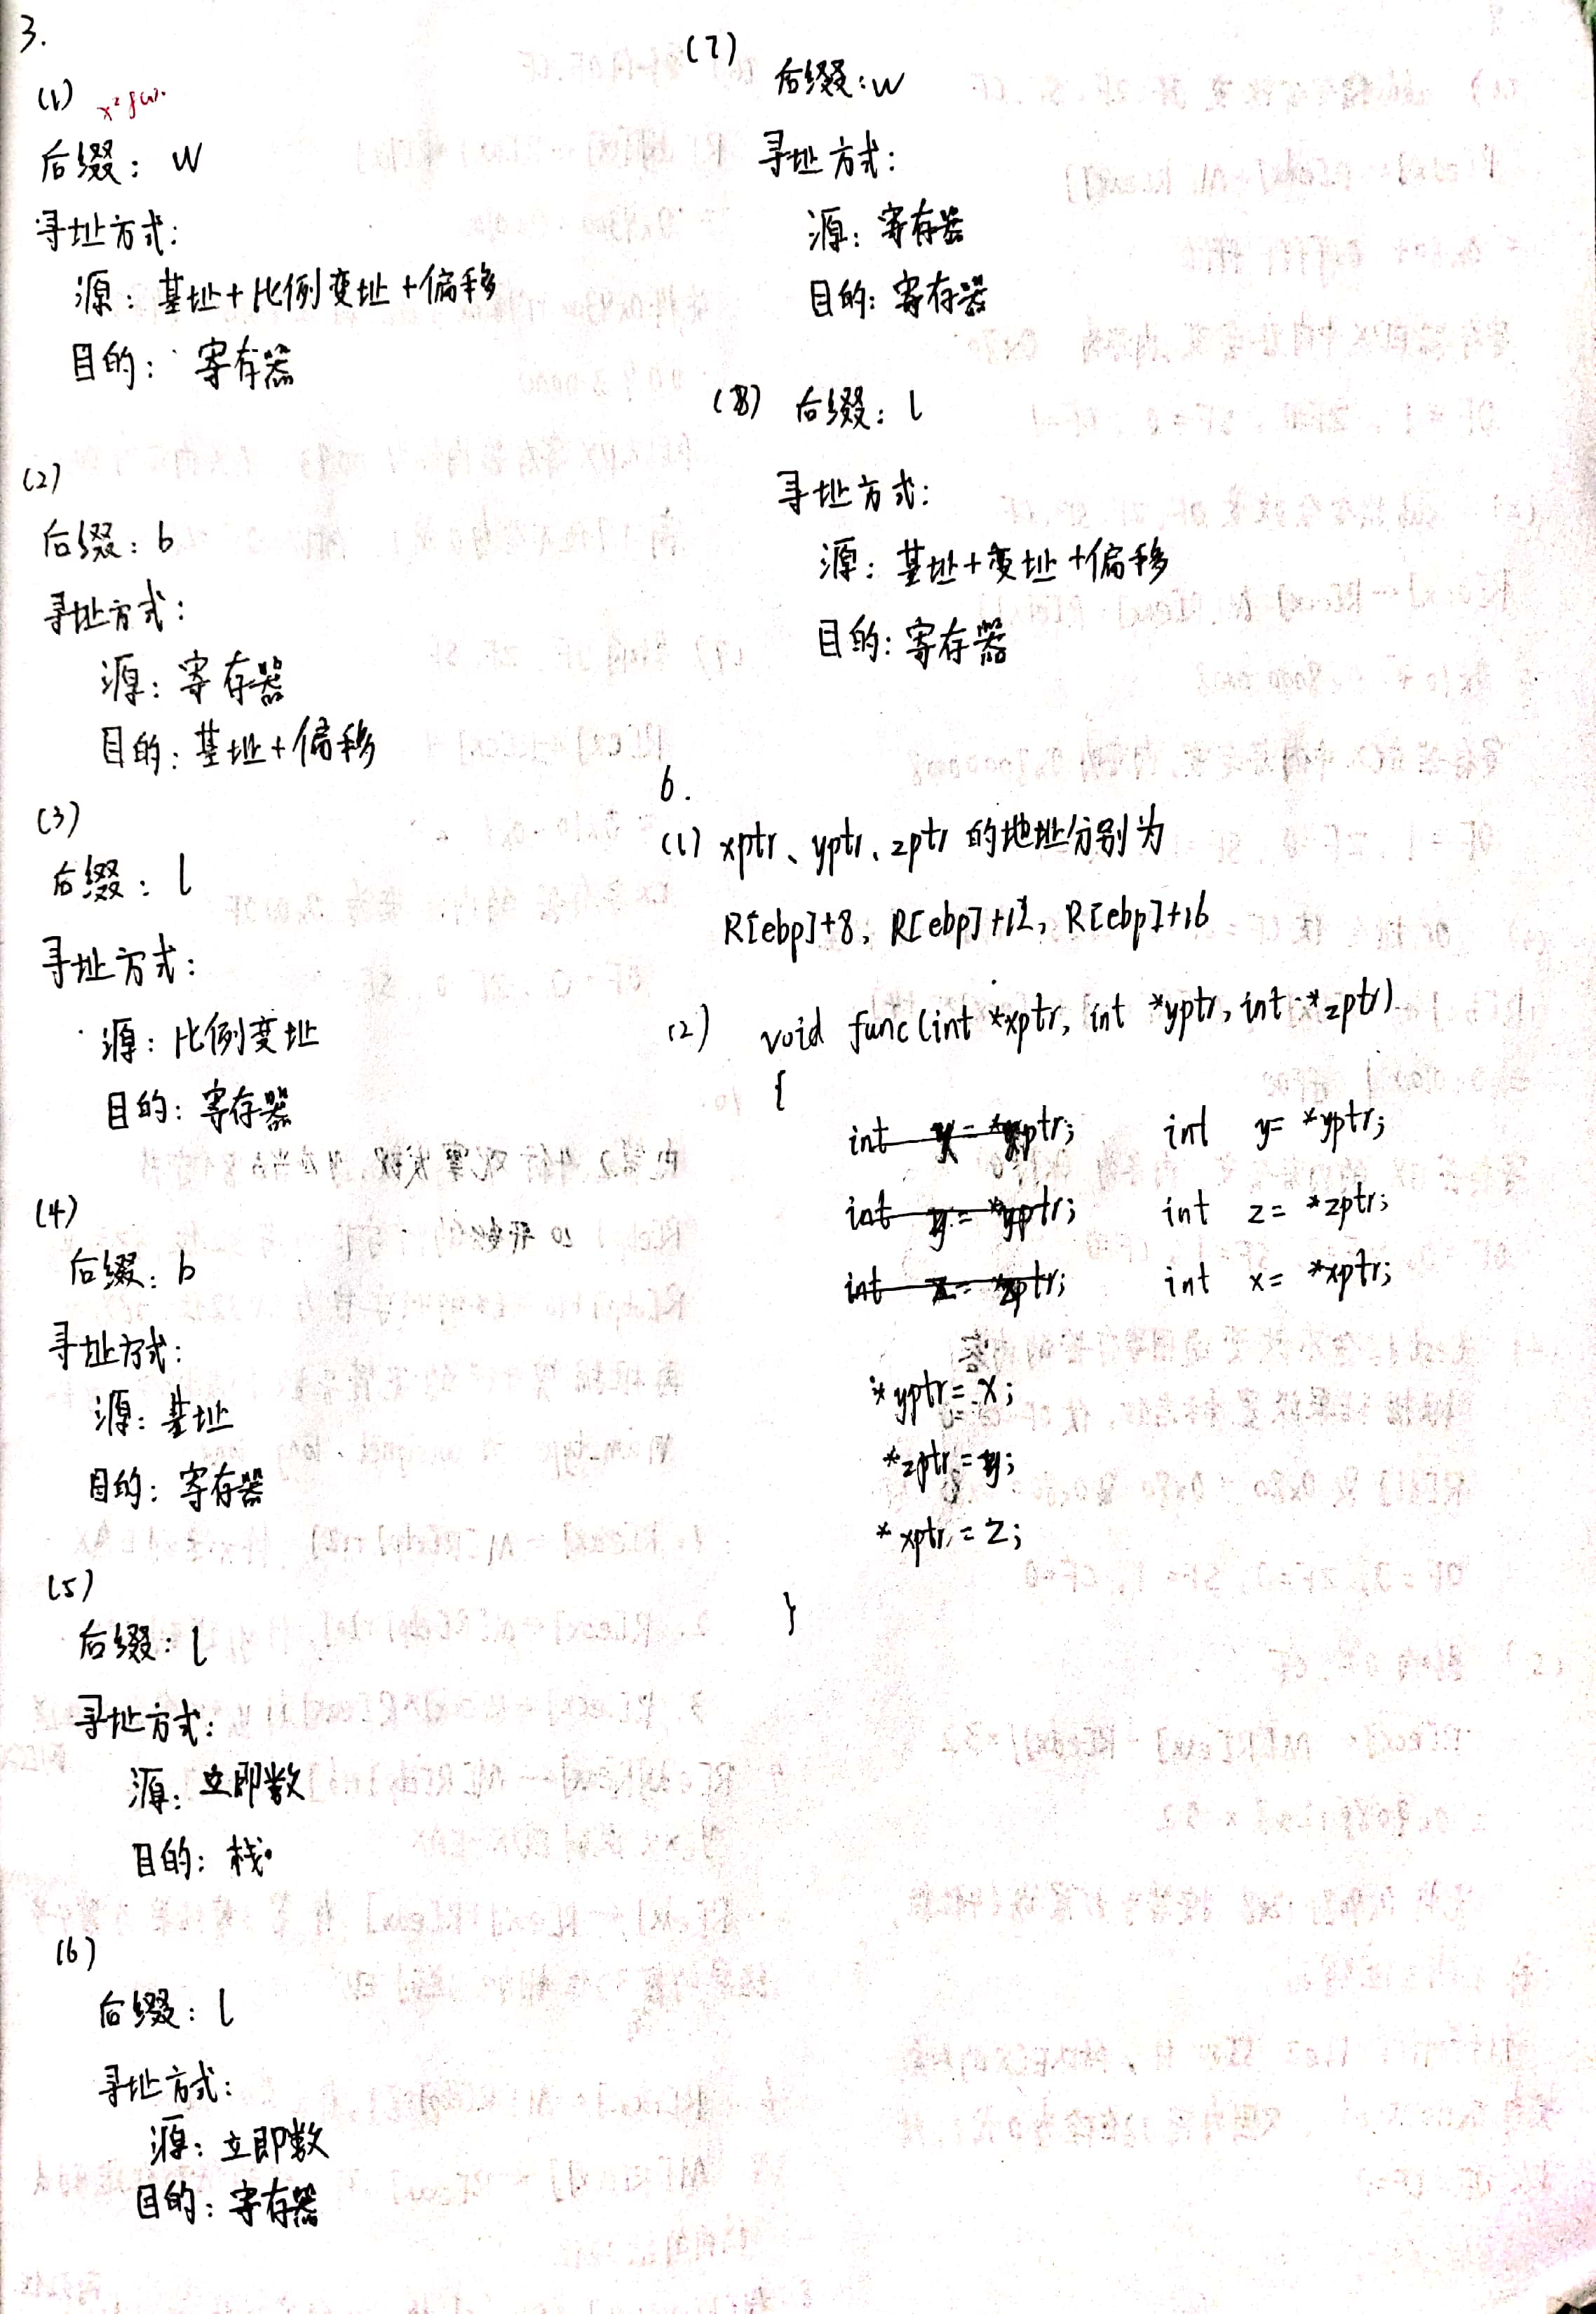 3.
(1) x² f(x).
后缀: w
寻址方式:
源: 基址+比例变址+偏移
目的: 寄存器
(2)
后缀: b
寻址方式:
源: 寄存器
目的: 基址+偏移
(3)
后缀: l
寻址方式:
源: 比例变址
目的: 寄存器
(4)
后缀: b
寻址方式:
源: 基址
目的: 寄存器
(5)
后缀: l
寻址方式:
源: 立即数
目的: 栈
(6)
后缀: l
寻址方式:
源: 立即数
目的: 寄存器
(7)
后缀: w
寻址方式:
源: 寄存器
目的: 寄存器
(8) 后缀: l
寻址方式:
源: 基址+变址+偏移
目的: 寄存器
6.
(1) xptr、yptr、zptr 的地址分别为
R[ebp]+8, R[ebp]+12, R[ebp]+16
(2) void func(int *xptr, int *yptr, int *zptr)
{
int y= *yptr;
int z= *zptr;
int x= *xptr;
*yptr= x;
*zptr= y;
*xptr= z;
}